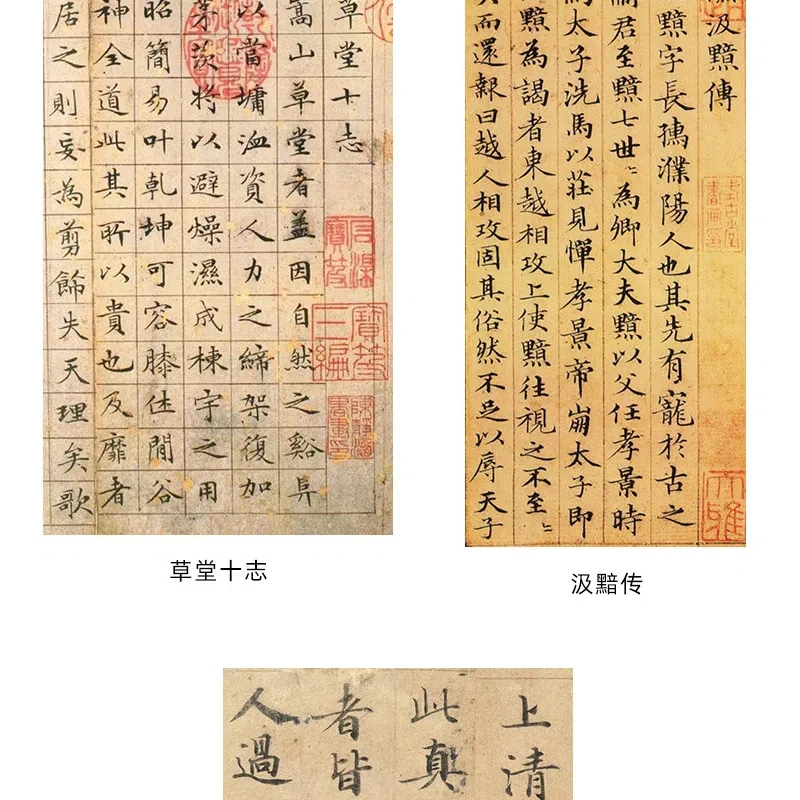 草堂十志
嵩山草堂者盖因自然之谿阜
以當墉洫資人力之締架復加
茅茨將以避燥濕成棟宇之用
昭簡易叶乾坤可容膝休閒谷
神全道此其所以貴也及靡者
居之則妄為剪飾失天理矣歌
草堂十志
汲黯傳
黯字長孺濮陽人也其先有寵於古之
君至黯七世〻為卿大夫黯以父任孝景時
為太子洗馬以莊見憚孝景帝崩太子即
黯為謁者東越相攻上使黯往視之不至〻
而還報曰越人相攻固其俗然不足以辱天子
汲黯传
上清
此真
者皆
人過